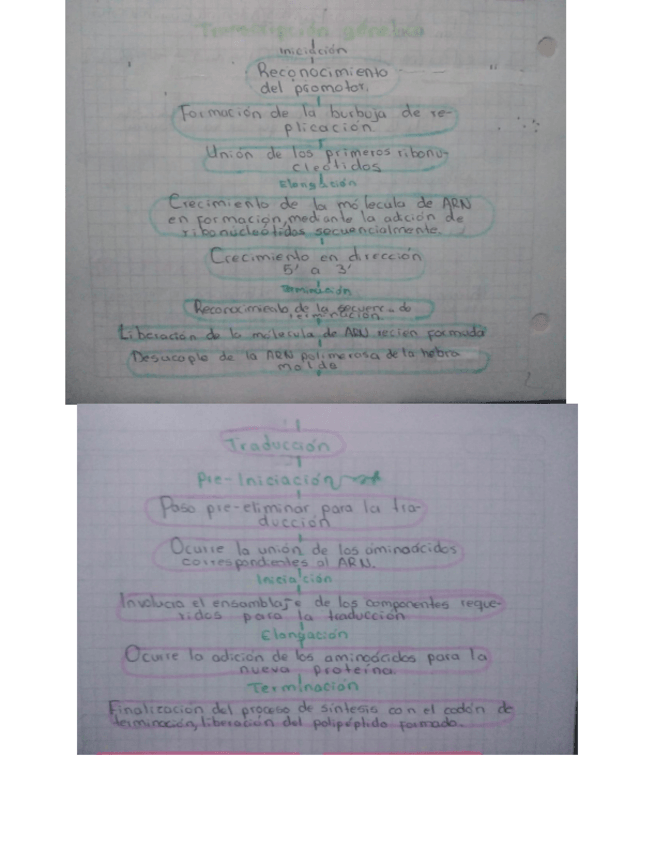 Transcripción genética
Iniciación
Reconocimiento
del promotor.
Formación de la burbuja de re-
plicación.
Unión de los primeros ribonu-
cleótidos
Elongación
Crecimiento de la molécula de ARN
en formación, mediante la adición de
ribonucleótidos secuencialmente.
Crecimiento en dirección
5' a 3'
Terminación
Reconocimiento de la secuencia de
terminación.
Liberación de la molécula de ARN recien formada
Desacople de la ARN polimerasa de la hebra
molde
2
Traducción
Pre-Iniciación
Paso pre-eliminar para la tra-
ducción
Ocurre la unión de los aminoácidos
correspondientes al ARN.
Iniciación
Involucra el ensamblaje de los componentes reque-
ridos para la traducción
Elongación
Ocurre la adición de los aminoácidos para la
nueva proteína.
Terminación
Finalización del proceso de síntesis con el codón de
terminación, liberación del polipéptido formado.